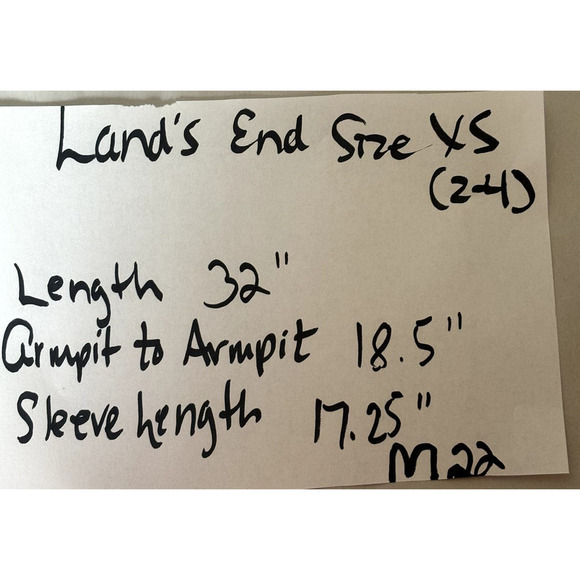 Land's End Size XS
(2-4)
Length 32"
Armpit to Armpit 18.5"
Sleeve Length 17.25"
M22